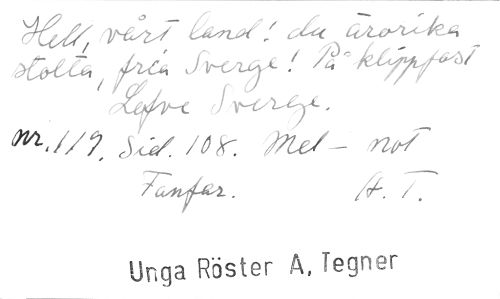 Hell, vårt land! du ärorika
stolta, fria Sverge! På klippfast
Lefve Sverge.
nr. 119. Sid. 108. Mel- not
Fanfar. A. T.
Unga Röster A, Tegner